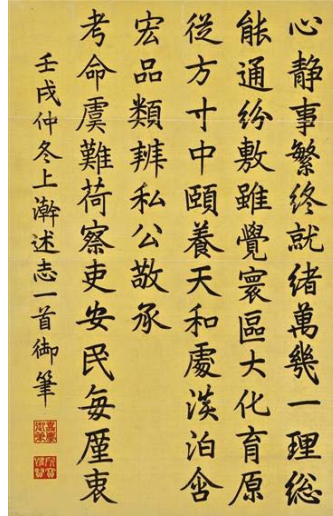 心静事繁終就緒萬幾一理総
能通紛敷雖覺寰區大化育原
從方寸中頤養天和處淡泊含
宏品類辨私公敬承
考命虞難荷察吏安民每廑衷
壬戌仲冬上澣述志一首御筆
嘉慶御筆